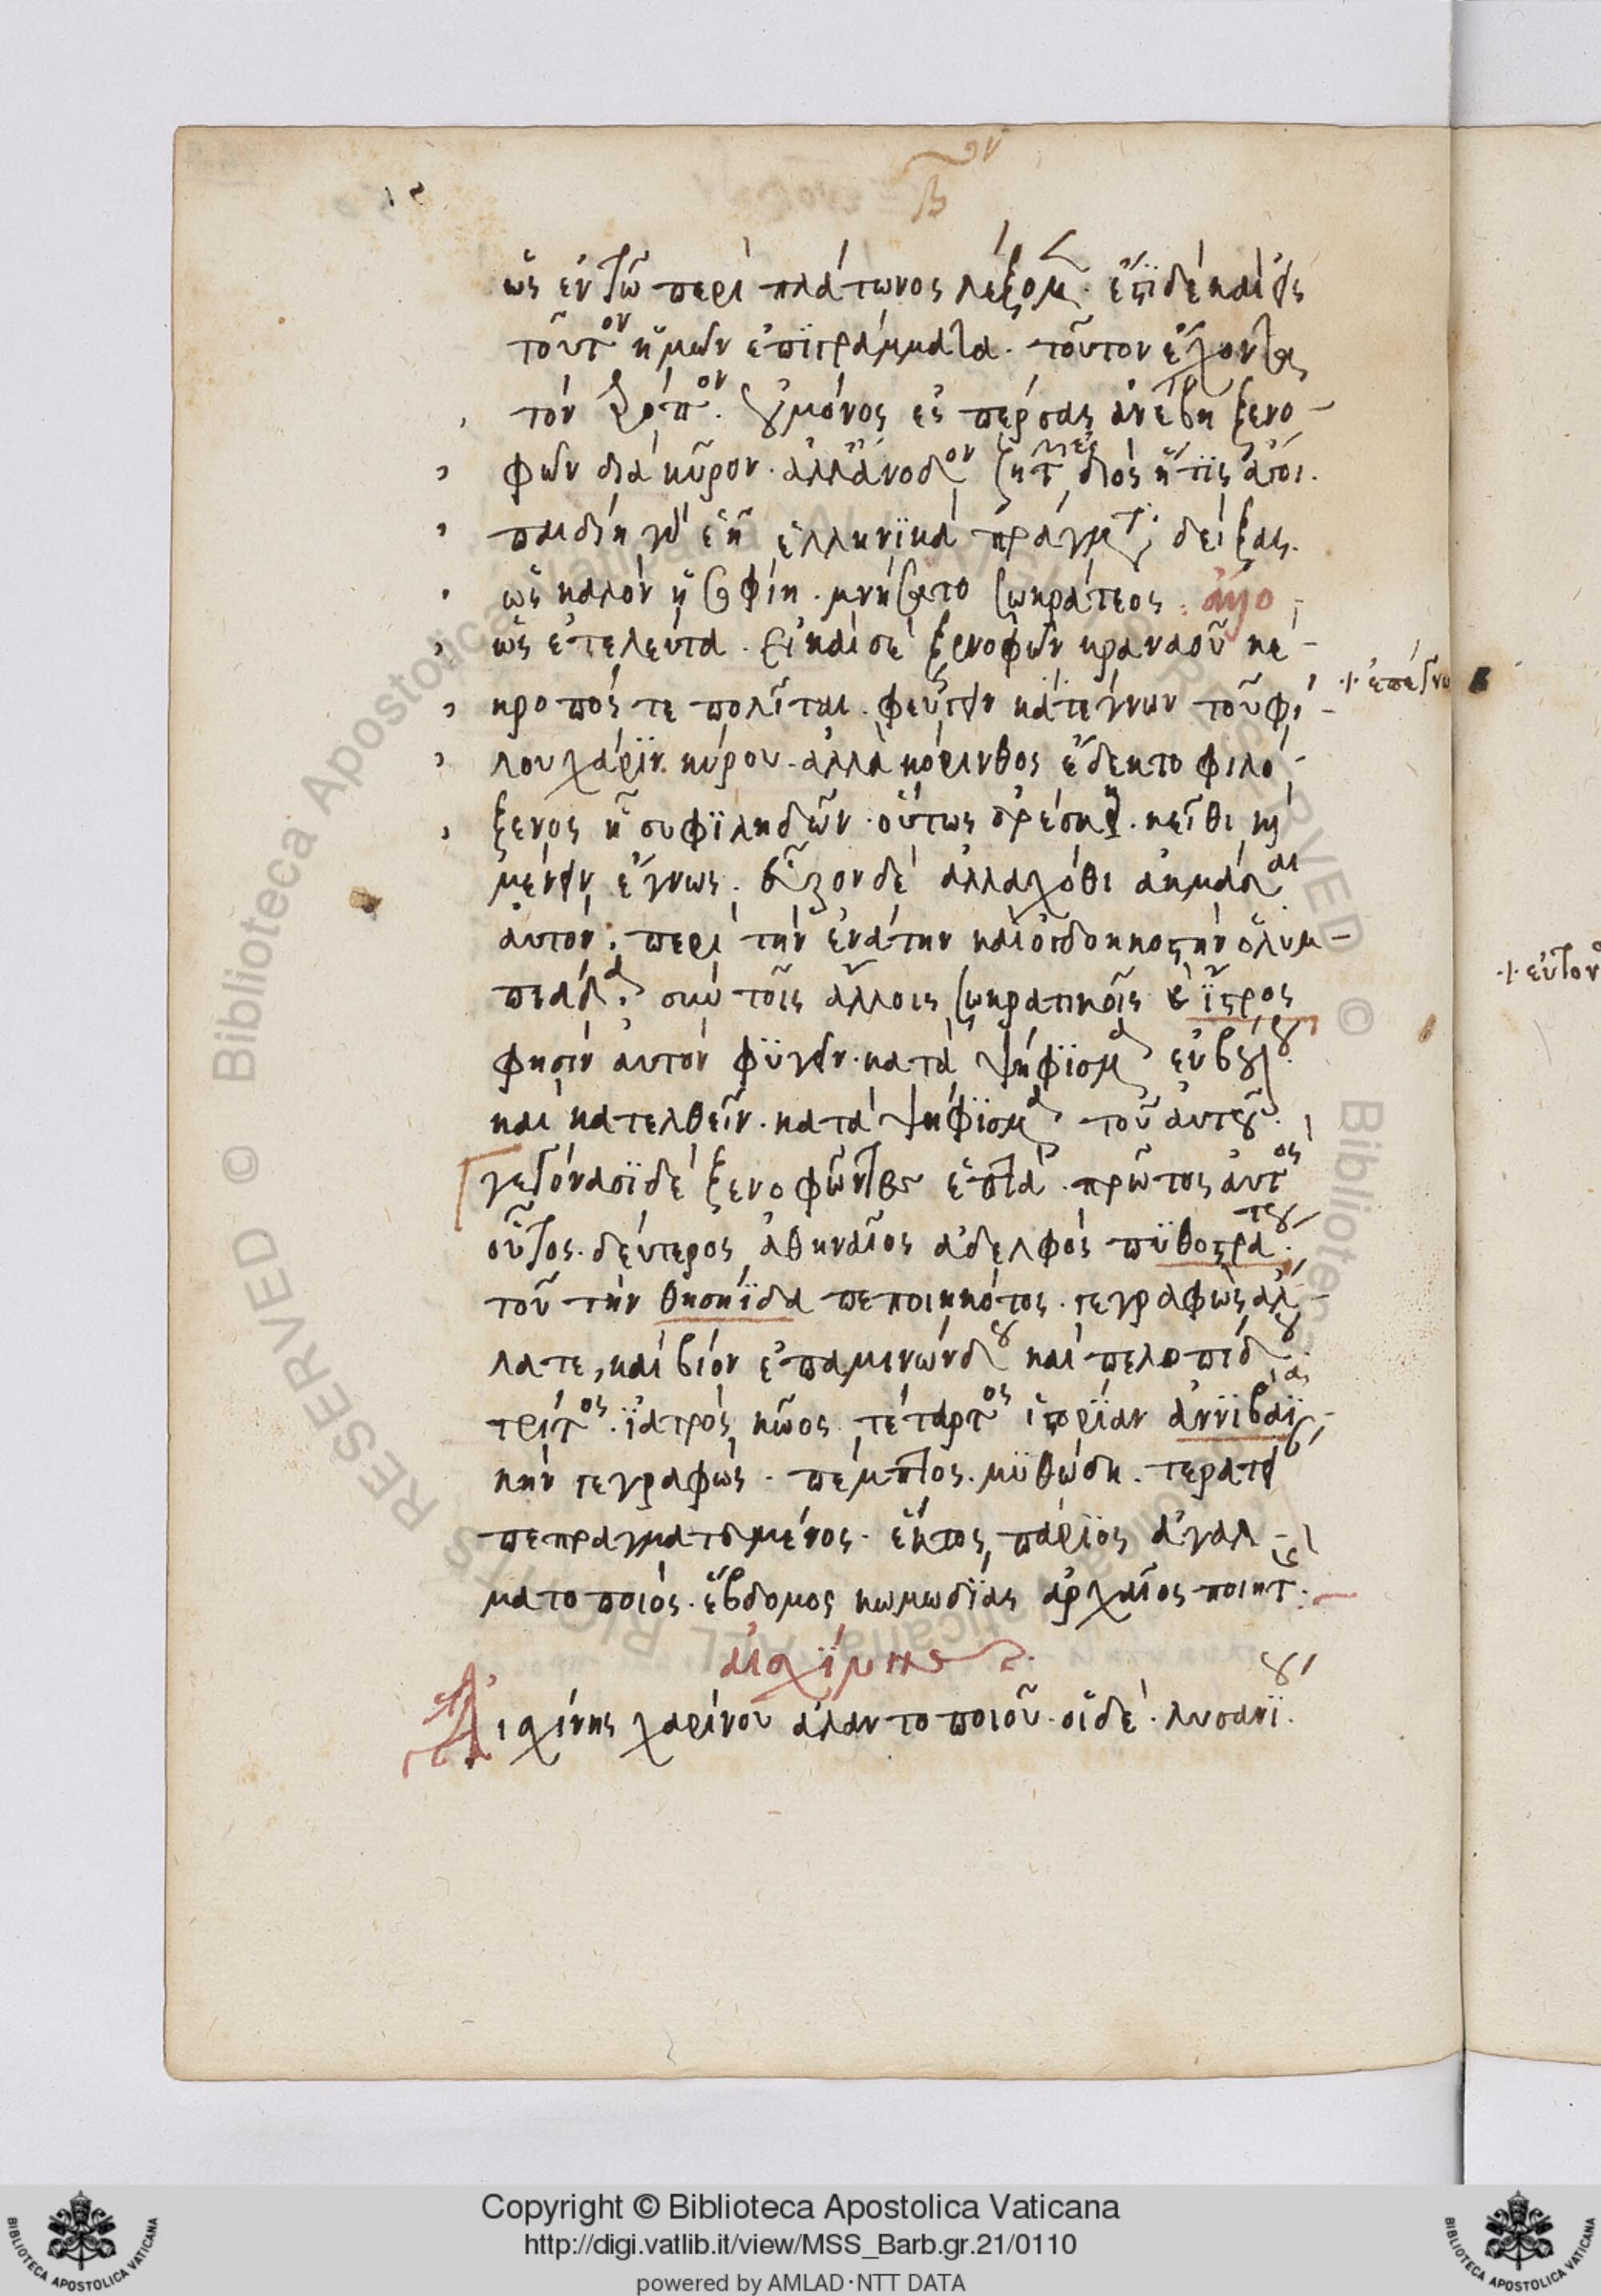 βον
ὡς ἐν τῷ περὶ πλάτωνος λέξομεν. ἔστι δὲ καὶ εἰς
τοῦτον ἡμῶν ἐπιγράμματα. τοῦτον ἔχοντα
τὸν τρόπον. οὐ μόνος ἐς πέρσας ἀνέβη ξενο-
φῶν διὰ κῦρον. ἀλλ' ἄνοδον ζητῶν ἐς διὸς ἥτις ἄγοι.
παιδίη γὰρ ἑῇ ἑλληνικὰ πράγματα δείξας.
ὡς καλὸν ἡ σοφίη. μνήσατο σωκράτεος. ἄλλο
ὡς ἐτελεύτα. εἰ καὶ σὲ ξενοφῶν κραναοῦ κέ-
κροπός τε πολῖται. φεύγειν κατέγνων τοῦ φί-
λου χάριν κύρου. ἀλλὰ κόρινθος ἔδεκτο φιλό-
ξενος ᾗ συ φιληδῶν. οὕτως ἀρέσκῃ. κεῖθι καὶ
μένειν ἔγνως. εὗρον δὲ ἀλλαχόθι ἀκμάσαι
αὐτόν. περὶ τὴν ἐνάτην καὶ ὀγδοηκοστὴν ὀλυμ-
πιάδα. σὺν τοῖς ἄλλοις σωκρατικοῖς. καὶ ἴστρος
φησὶν αὐτὸν φυγεῖν. κατὰ ψήφισμα εὐβούλου.
καὶ κατελθεῖν. κατὰ ψήφισμα τοῦ αὐτοῦ.
γεγόνασι δὲ ξενοφῶντες ἑπτά. πρῶτος αὐτὸς
οὗτος. δεύτερος ἀθηναῖος ἀδελφὸς πυθοστράτου.
τοῦ τὴν θησηίδα πεποιηκότος. γεγραφὼς ἄλ-
λα τε, καὶ βίον ἐπαμινώνδου καὶ πελοπίδου.
τρίτος. ἰατρὸς κῶος. τέταρτος ἱστορίαν ἀννιβαϊ-
κὴν γεγραφώς. πέμπτος. μυθώδη. τερατεί
πεπραγματευμένος. ἕκτος, πάριος ἀγαλ-
ματοποιός. ἕβδομος κωμωδίας ἀρχαίας ποιητής.
αἰσχίνης
Αἰσχίνης χαρίνου ἀλαντοποιοῦ. οἱ δὲ. λυσανίου.